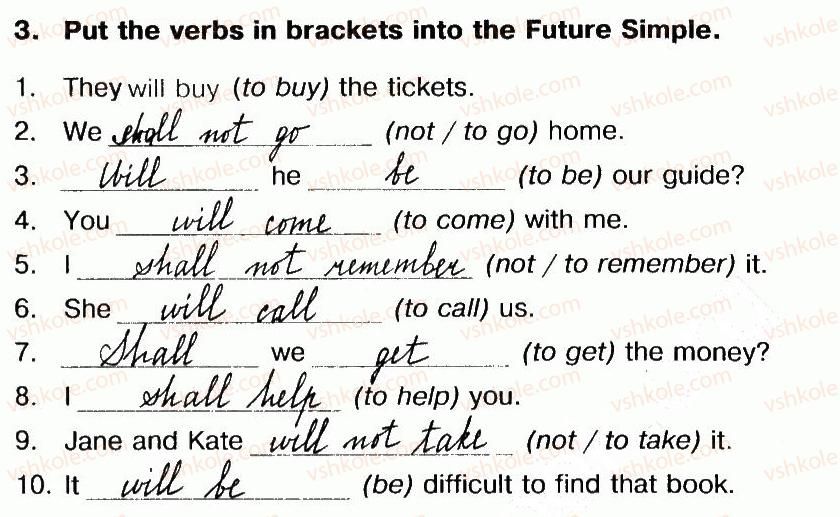 3. Put the verbs in brackets into the Future Simple.
1. They will buy (to buy) the tickets.
2. We shall not go (not / to go) home.
3. Will he be (to be) our guide?
4. You will come (to come) with me.
5. I shall not remember (not / to remember) it.
6. She will call (to call) us.
7. Shall we get (to get) the money?
8. I shall help (to help) you.
9. Jane and Kate will not take (not / to take) it.
10. It will be (be) difficult to find that book.
vshkole.com